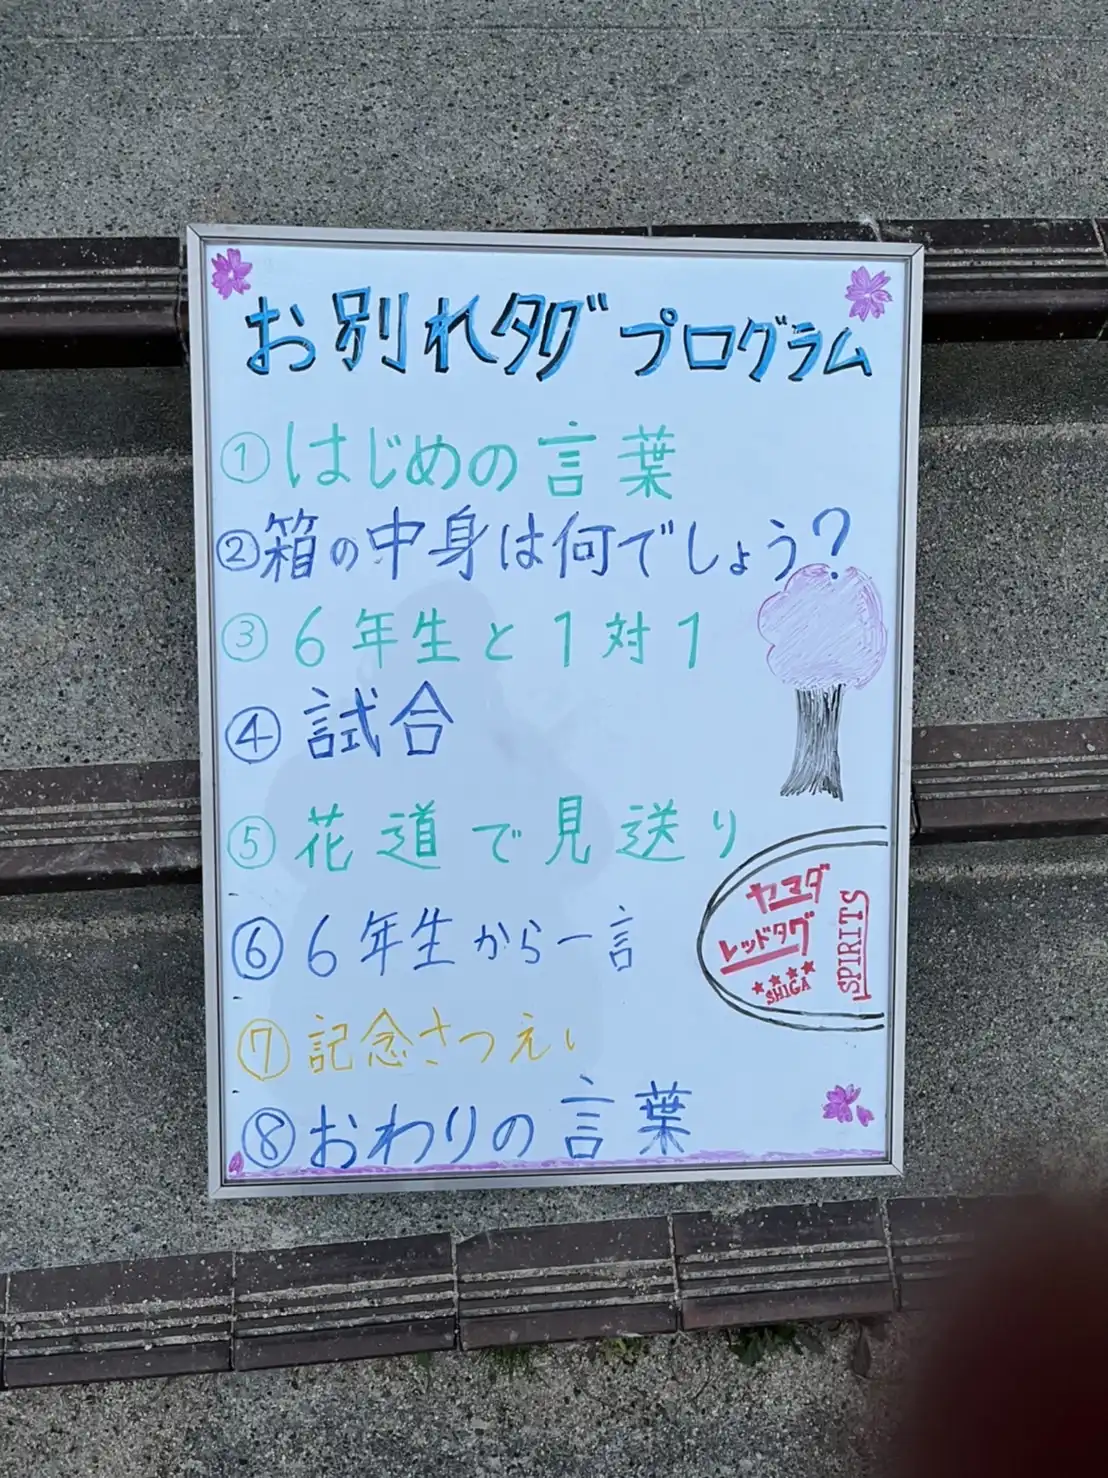 お別れタグ プログラム
①はじめの言葉
②箱の中身は何でしょう?
③6年生と1対1
④試合
⑤花道で見送り
⑥6年生から一言
⑦記念さつえい
⑧おわりの言葉
ヤマダ
レッドタグ
★★★★
SHIGA
SPIRITS